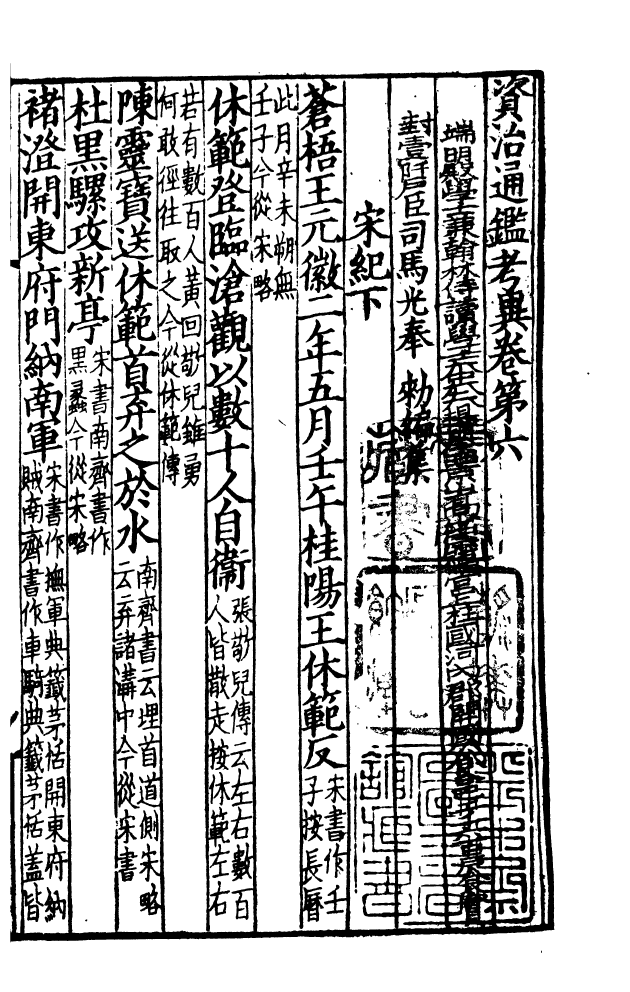 資治通鑑考異卷第六
端明殿學士兼翰林侍讀學士太中大夫提舉西京嵩山崇福宮上柱國河內郡開國公食邑
封壹阡臣司馬光奉　勑編集
宋紀下
蒼梧王元徽二年五月壬午桂陽王休範反宋書作壬
子按長曆
此月辛未朔無
壬子今從宋略
休範登臨滄觀以數十人自衞張敬兒傳云左右數百
人皆散走按休範左右
若有數百人黃回敬兒雖勇
何敢徑往取之今從休範傳
陳靈寶送休範首弃之於水南齊書云埋首道側宋略
云弃諸溝中今從宋書
杜黑騾攻新亭宋書南齊書作
黑蠡今從宋略
褚澄開東府門納南軍宋書作撫軍典籤茅恬開東府納
賊南齊書作車騎典籤茅恬蓋皆